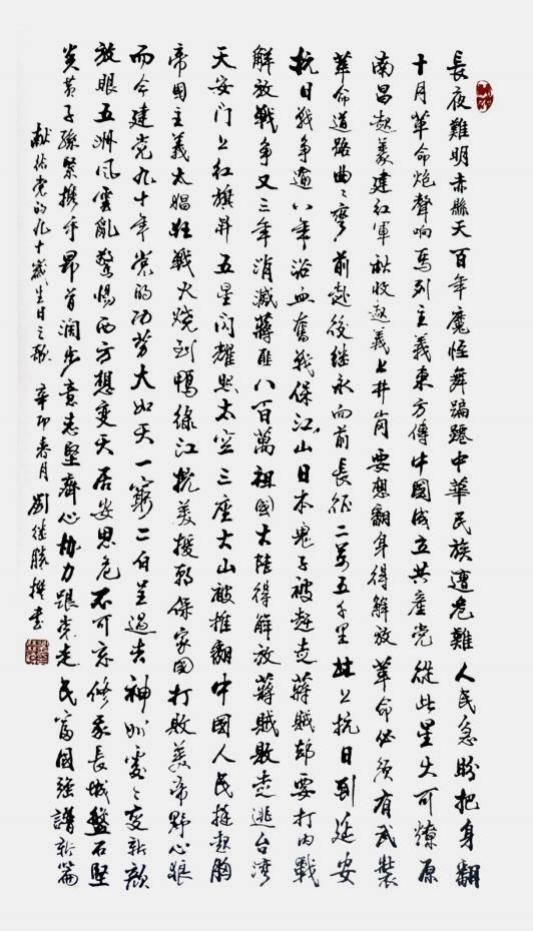 長夜難明赤縣天百年魔怪舞蹁躚中華民族遭危難人民急盼把身翻
十月革命炮聲响馬列主義東方傳中國成立共產党從此星火可燎原
南昌起義建紅軍秋收起義上井岗要想翻身得解放革命必須有武裝
革命道路曲々彎前赴後继永向前長征二万五千里北上抗日到延安
抗日戰争適八年浴血奮戰保江山日本鬼子被赶走蔣賊却要打内戰
解放戰争又三年消滅蔣匪八百萬祖國大陸得解放蔣賊敗走逃台湾
天安门上红旗升五星闪耀照太空三座大山被推翻中國人民挺起胸
帝國主義太猖狂戰火烧到鴨綠江抗美援朝保家国打敗美帝野心狼
而今建党九十年党的功劳大如天一窮二白早過去神州處々变新颜
放眼五洲风雲亂驚惕西方想变天居安思危不可忘修我長城磐石堅
炎黄子孫緊携手昂首阔步意志堅齊心协力跟党走民富國強譜新篇
献给党的九十歲生日之歌 辛卯春月 劉继勝撰書